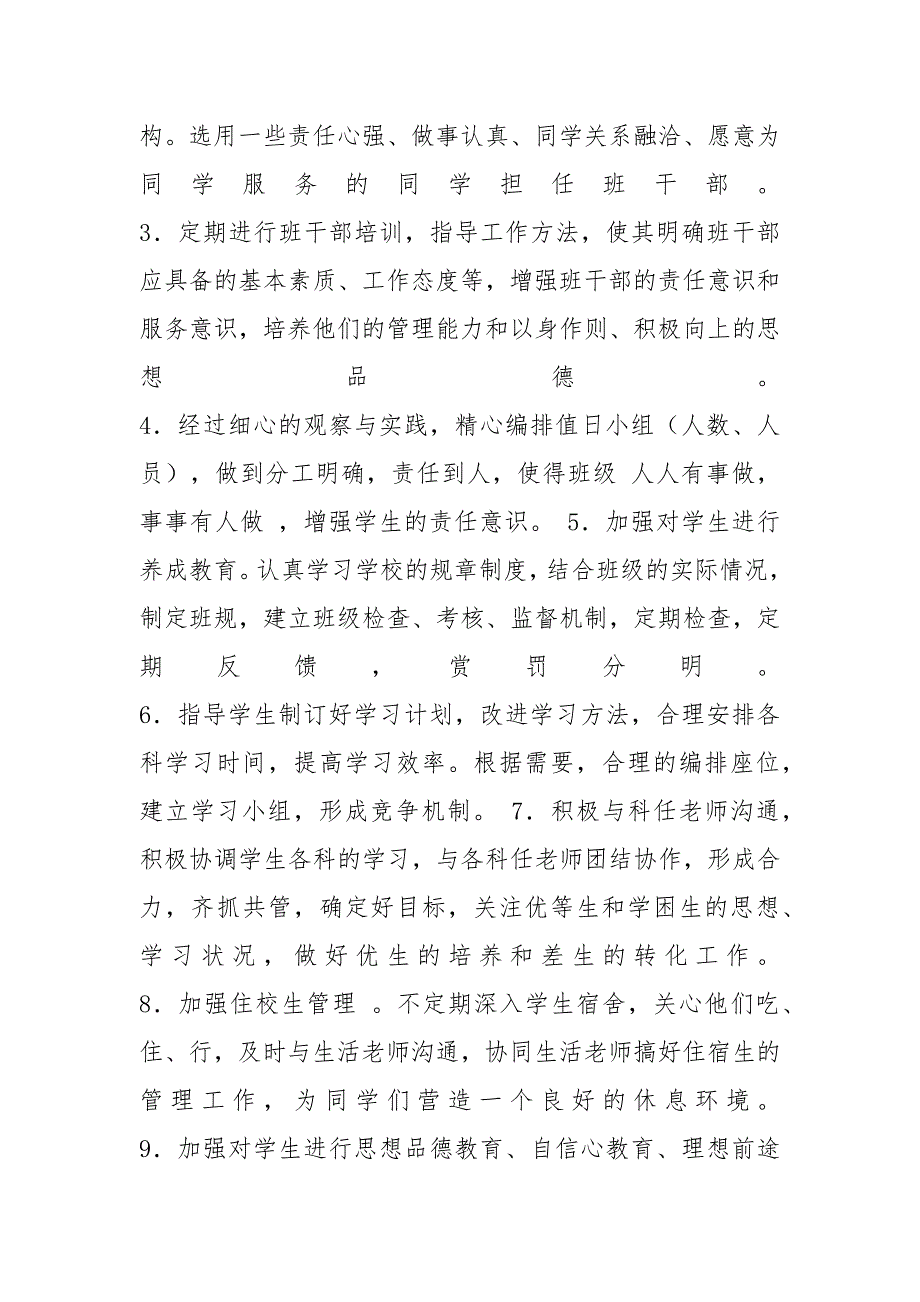 构。选用一些责任心强、做事认真、同学关系融洽、愿意为
同学服务的同学担任班干部。
3．定期进行班干部培训，指导工作方法，使其明确班干部
应具备的基本素质、工作态度等，增强班干部的责任意识和
服务意识，培养他们的管理能力和以身作则、积极向上的思
想品德。
4．经过细心的观察与实践，精心编排值日小组（人数、人
员），做到分工明确，责任到人，使得班级 人人有事做，
事事有人做 ，增强学生的责任意识。 5．加强对学生进行
养成教育。认真学习学校的规章制度，结合班级的实际情况，
制定班规，建立班级检查、考核、监督机制，定期检查，定
期反馈，赏罚分明。
6．指导学生制订好学习计划，改进学习方法，合理安排各
科学习时间，提高学习效率。根据需要，合理的编排座位，
建立学习小组，形成竞争机制。 7．积极与科任老师沟通，
积极协调学生各科的学习，与各科任老师团结协作，形成合
力，齐抓共管，确定好目标，关注优等生和学困生的思想、
学习状况，做好优生的培养和差生的转化工作。
8．加强住校生管理 。不定期深入学生宿舍，关心他们吃、
住、行，及时与生活老师沟通，协同生活老师搞好住宿生的
管理工作，为同学们营造一个良好的休息环境。
9．加强对学生进行思想品德教育、自信心教育、理想前途